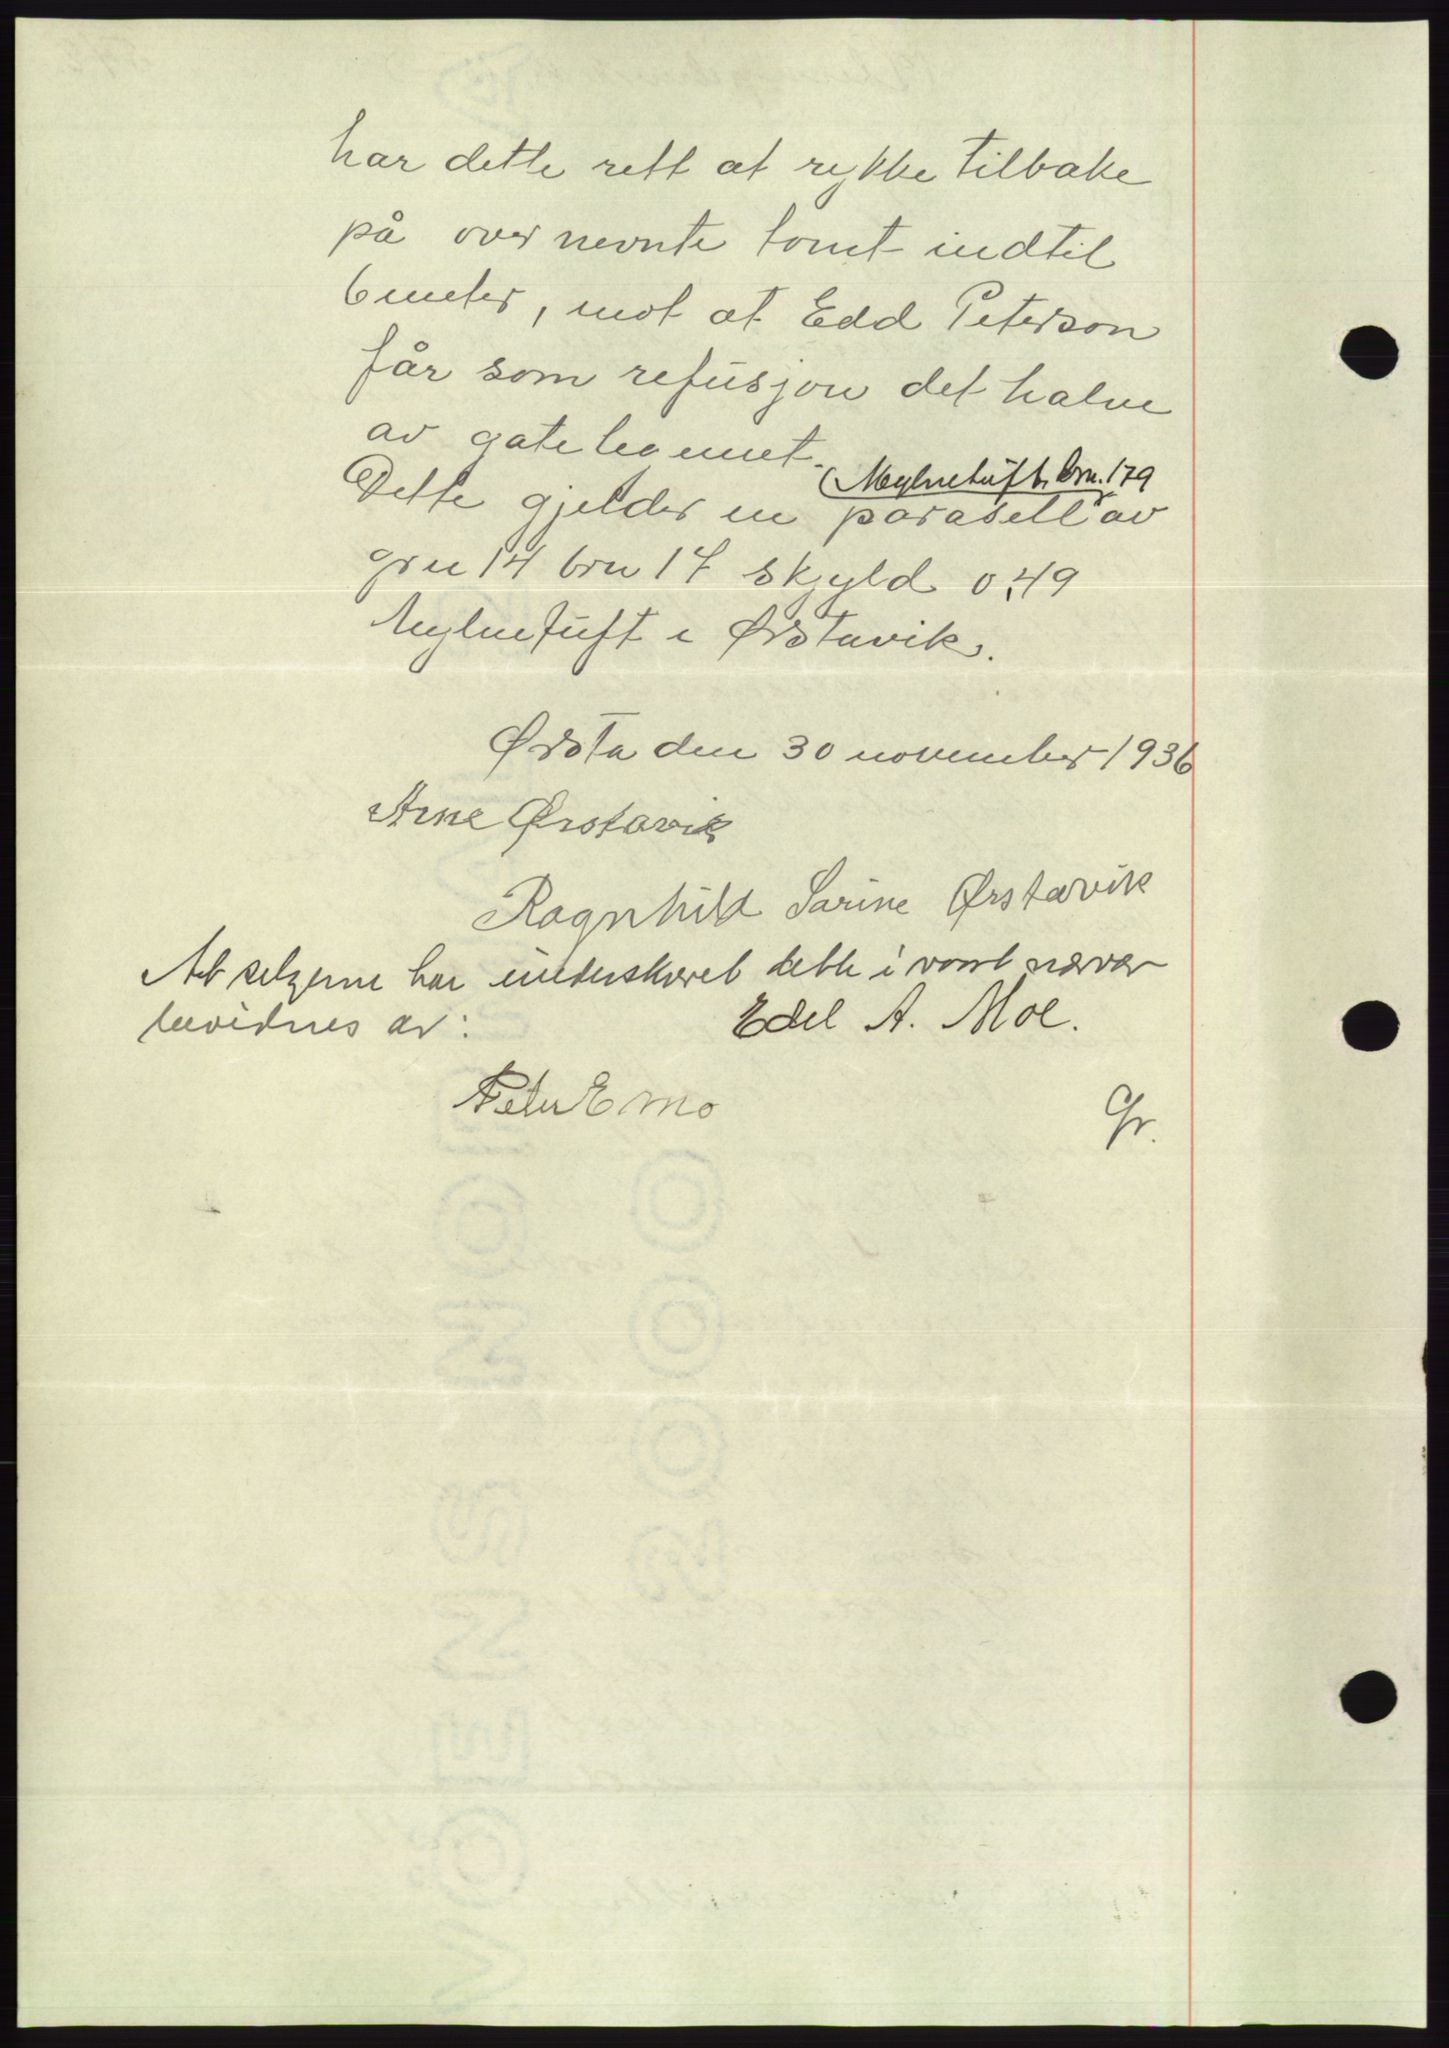 har dette rett at rykke tilbake
på over nevnte tomt indtil
6 meter, mot at Edd Peterson
får som refusjon det halve
av gatelegemet.
(Mylnetuft, brn. 179
Dette gjelder en parasell av
grn 14 brn 17 skyld 0,49
Mylnetuft i Ørstavik.
Ørsta den 30 november 1936
Arne Ørstavik
Ragnhild Sarine Ørstavik
At selgerne har underskrevet dette i vort nærvær
bevidnes av:
Edel A. Moe.
Peter E Mo
Gr.